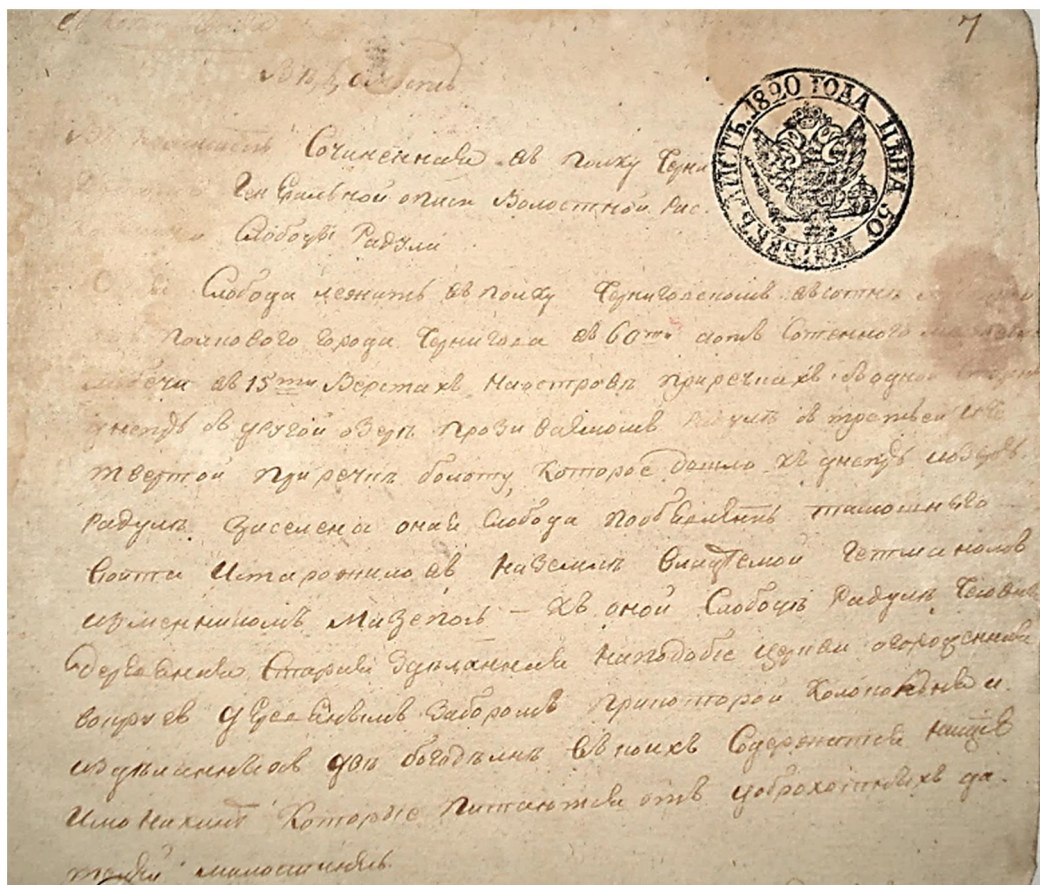 7
ЛИСТЪ. 1820 ГОДА ЦѢНА 50 КОПѢЕКЪ
Сочиненная въ полку Черни
Генеральной описи Волостной Рас.
Слободы Радули
Слобода лежитъ въ полку Черниговскомъ въ сотни
Полкового города Чернигова въ 60ти аотъ Сотенного
Любечи въ 15ти Верстахъ на островѣ при речкахъ в одной
днепръ в другой озеръ прозиваемомъ Радулъ в третьей
твертой при речкѣ болоту, которое дошло къ днепръ
Радулъ Заселена оная Слобода по объявленію тамошнего
войта и старожиловъ на Землѣ Гетманомъ
изменникомъ Мазепою — въ оной Слободѣ Радулѣ
деревянная Старая зделанная на подобіе церкви огороженная
вокругъ деревяннымъ заборомъ при которой Колокольня и
две богаделнѣ въ коихъ Содержатся нищіе
и монахини Которые питаются отъ доброхотныхъ да
милостиня